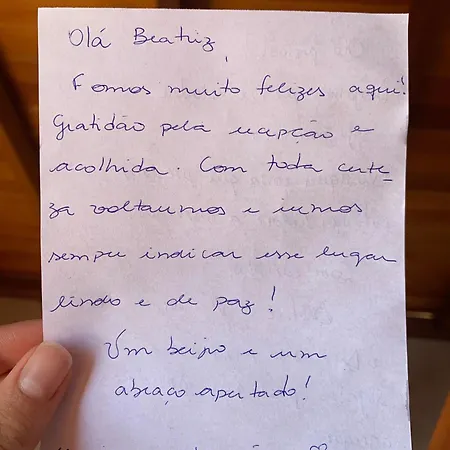 Olá Beatriz,
Fomos muito felizes aqui!
Gratidão pela recepção e
acolhida. Com toda certe-
za voltaremos e iremos
sempre indicar esse lugar
lindo e de paz!
Um beijo e um
abraço apertado!